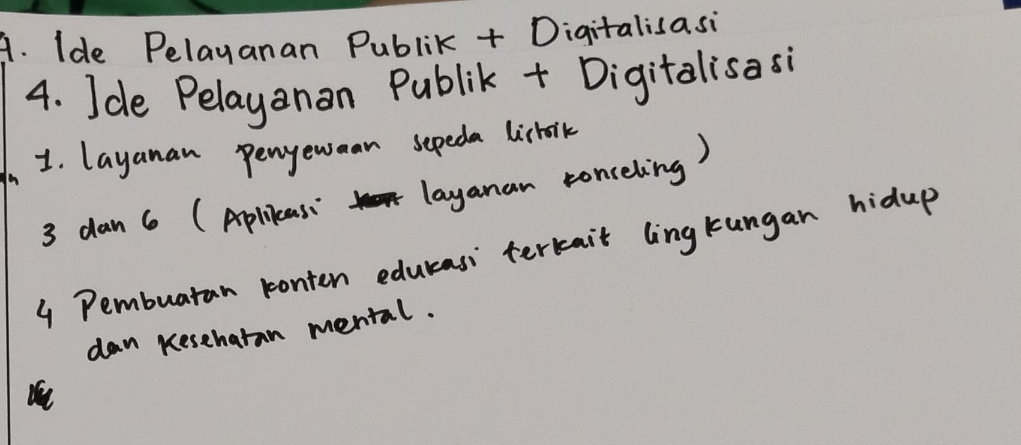 4. Ide Pelayanan Publik + Digitalisasi
4. Ide Pelayanan Publik + Digitalisasi
1. layanan penyewaan sepeda listrik
3 dan 6 (Aplikasi layanan konseling)
4 Pembuatan konten edukasi terkait lingkungan hidup
dan kesehatan mental.